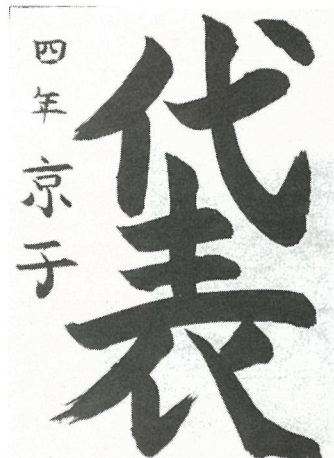 代表
四年 京子